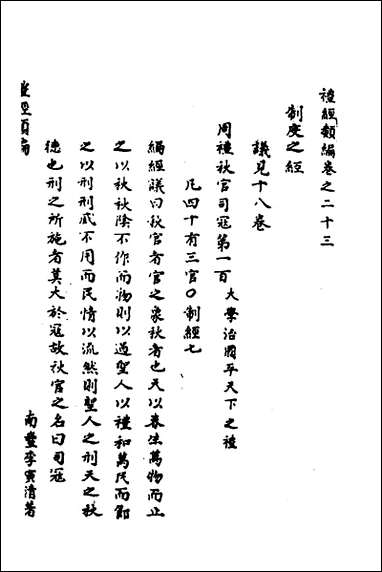 禮經類編卷之二十三
制度之經
議見十八卷
周禮秋官司寇第一百 大學治國平天下之禮
凡四十有三官〇制經七
編經議曰秋官者官之象秋者也天以春生萬物而止
之以秋秋陰不作而物則以過聖人以禮和萬民而節
之以刑刑威不用而民情以流然則聖人之刑天之秋
德也刑之所施者莫大於寇故秋官之名曰司寇
南豐李寅清著
禮經類編